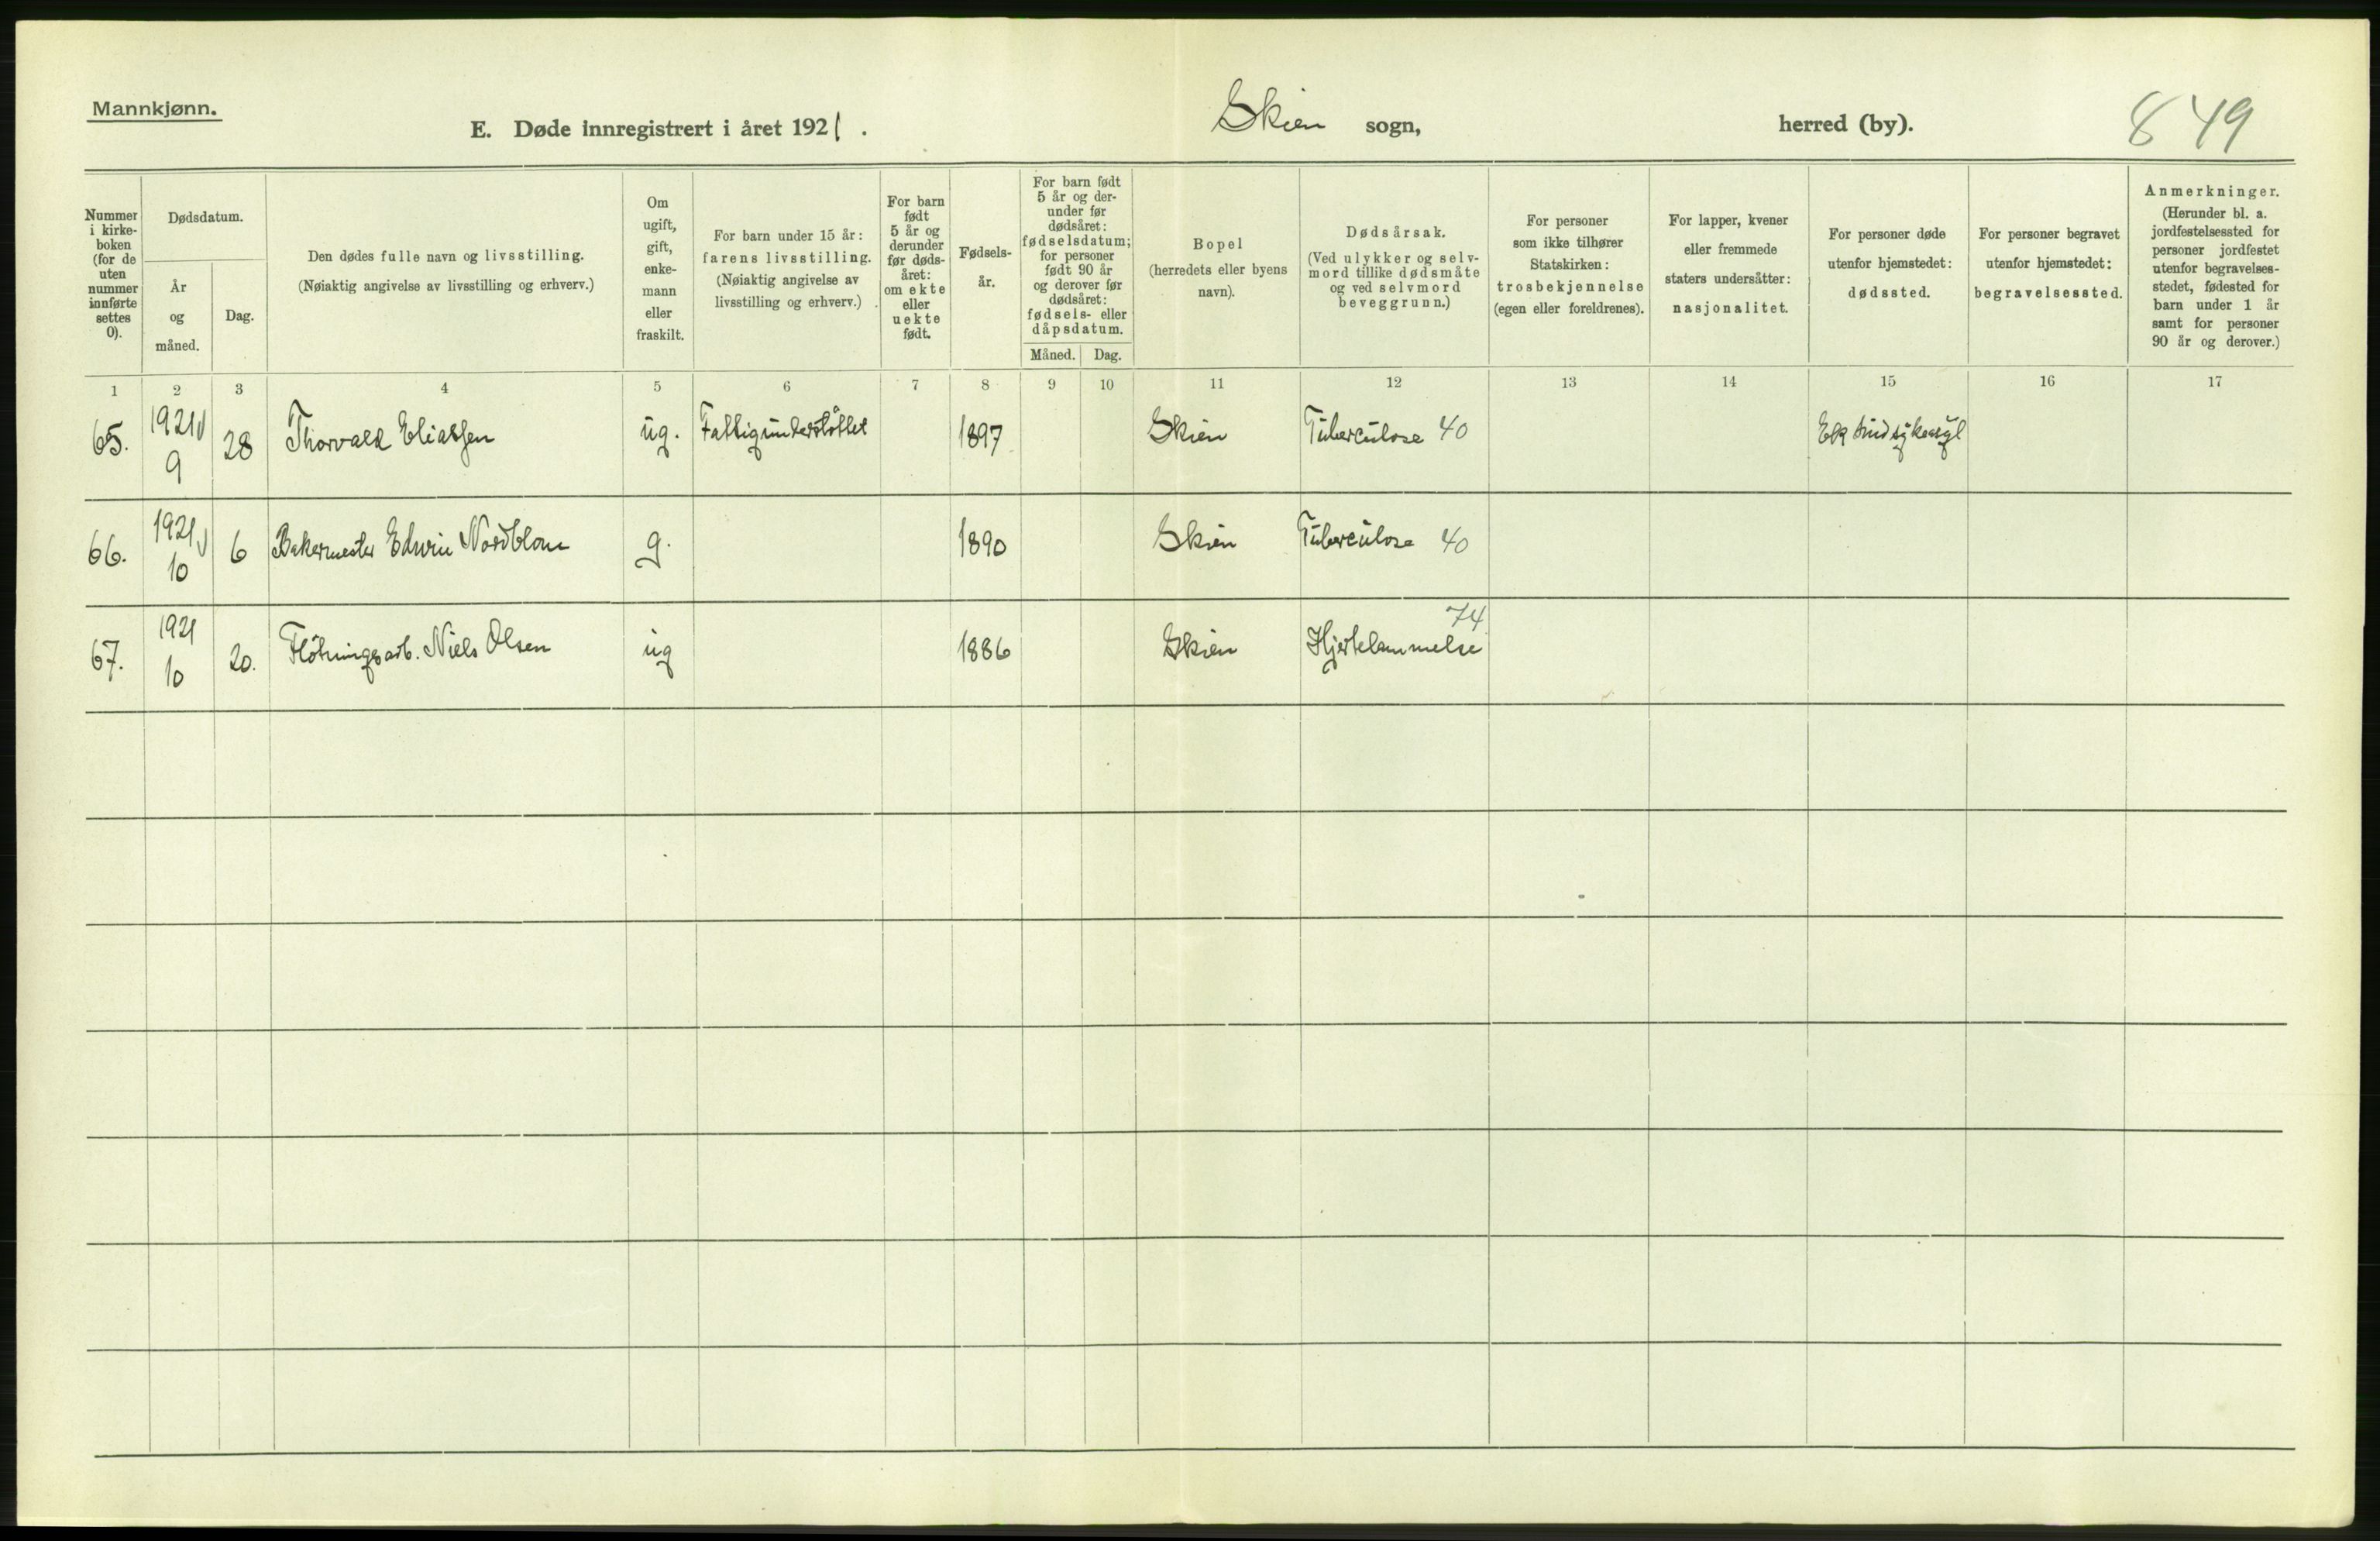 Mannkjønn.
E. Døde innregistrert i året 1921. Skien sogn, herred (by). 849
Nummer i kirke-boken (for de uten nummer innførte settes 0).
Dødsdatum.
År og måned.
Dag.
Den dødes fulle navn og livsstilling.
(Nøiaktig angivelse av livsstilling og erhverv.)
Om ugift, gift, enke-mann eller fraskilt.
For barn under 15 år: farens livsstilling. (Nøiaktig angivelse av livsstilling og erhverv.)
For barn født 5 år og derunder før døds-året: om ekte eller uekte født.
Fødsels-år.
For barn født 5 år og der-under før dødsåret: fødselsdatum; for personer født 90 år og derover før dødsåret: fødsels- eller dåpsdatum.
Måned. Dag.
Bopel (herredets eller byens navn).
Dødsårsak. (Ved ulykker og selv-mord tillike dødsmåte og ved selvmord beveggrunn.)
For personer som ikke tilhører Statskirken: trosbekjennelse (egen eller foreldrenes).
For lapper, kvener eller fremmede staters undersåtter: nasjonalitet.
For personer døde utenfor hjemstedet: dødssted.
For personer begravet utenfor hjemstedet: begravelsessted.
Anmerkninger. (Herunder bl. a. jordfestelsessted for personer jordfestet utenfor begravelses-stedet, fødested for barn under 1 år samt for personer 90 år og derover.)
1 2 3 4 5 6 7 8 9 10 11 12 13 14 15 16 17
65. 1921 9 28 Thorvald Eliassen ug. Fattigunderstøttet 1897 Skien Tuberculose 40
66. 1921 10 6 Bakermester Edwin Nordblom g. 1890 Skien Tuberculose 40
67. 1921 10 20. Fløtningsarb. Niels Olsen ug 1886 Skien Hjertelammelse 74